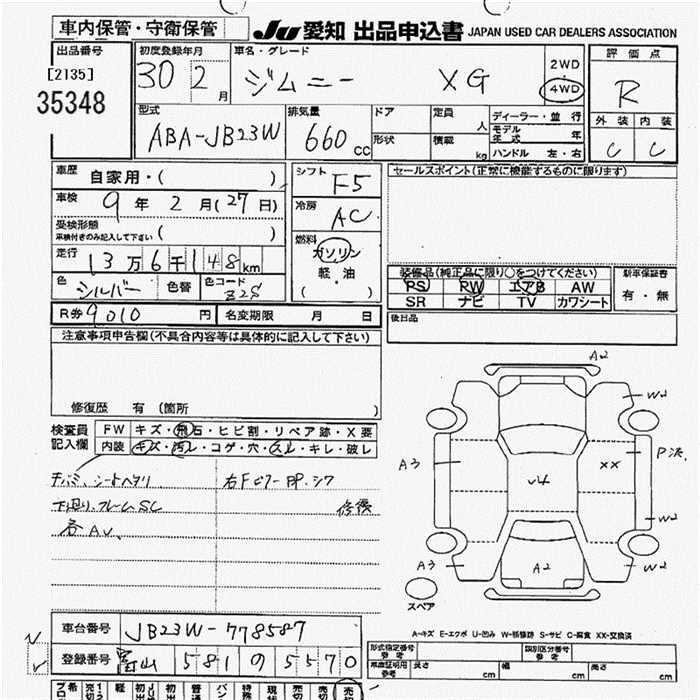 車内保管・守衛保管 JU 愛知 出品申込書 JAPAN USED CAR DEALERS ASSOCIATION
出品番号 初度登録年月 車名・グレード 2WD 評価点
[2135] 30 2月 ジムニー XG 4WD R
35348 型式 排気量 ドア 定員 人 ディーラー・並行 外装 内装
ABA-JB23W 660cc 形状 積載 kg モデル年式 年 C C
ハンドル 左・右
車歴 自家用・( ) シフト F5 セールスポイント(正常に機能するものに限ります)
車検 9年2月(27日) 冷房 AC
受検形態 ( )
車検付きのみ記入して下さい
燃料 ガソリン
走行 13万6千148km 軽・油
色 シルバー 色替 色コード Z2S ( )
装備品(純正品に限り〇をつけてください) 新車保証書
PS RW エアB AW 有・無
SR ナビ TV カワシート
R券 9010円 名変期限 月 日 後日品
注意事項申告欄(不具合内容等は具体的に記入して下さい)
修復歴 有 (箇所 )
検査員記入欄 FW キズ・飛石・ヒビ割・リペア跡・X要
内装 キズ・汚レ・コゲ・穴・スレ・キレ・破レ
シートヘタリ
下廻り、フレームSC 修復
各AV、
A2
W2
A3 XX P
√4
W2
A3 A2 W2
スペア
A-キズ E-エクボ U-凹み W-補修跡 S-サビ C-腐食 XX-交換済
車台番号 JB23W-778587
登録番号 富山 581 の 5570
型式指定番号 参考 類別区分番号 参考
車庫証明用 参考 長さ cm 幅 cm 高さ cm